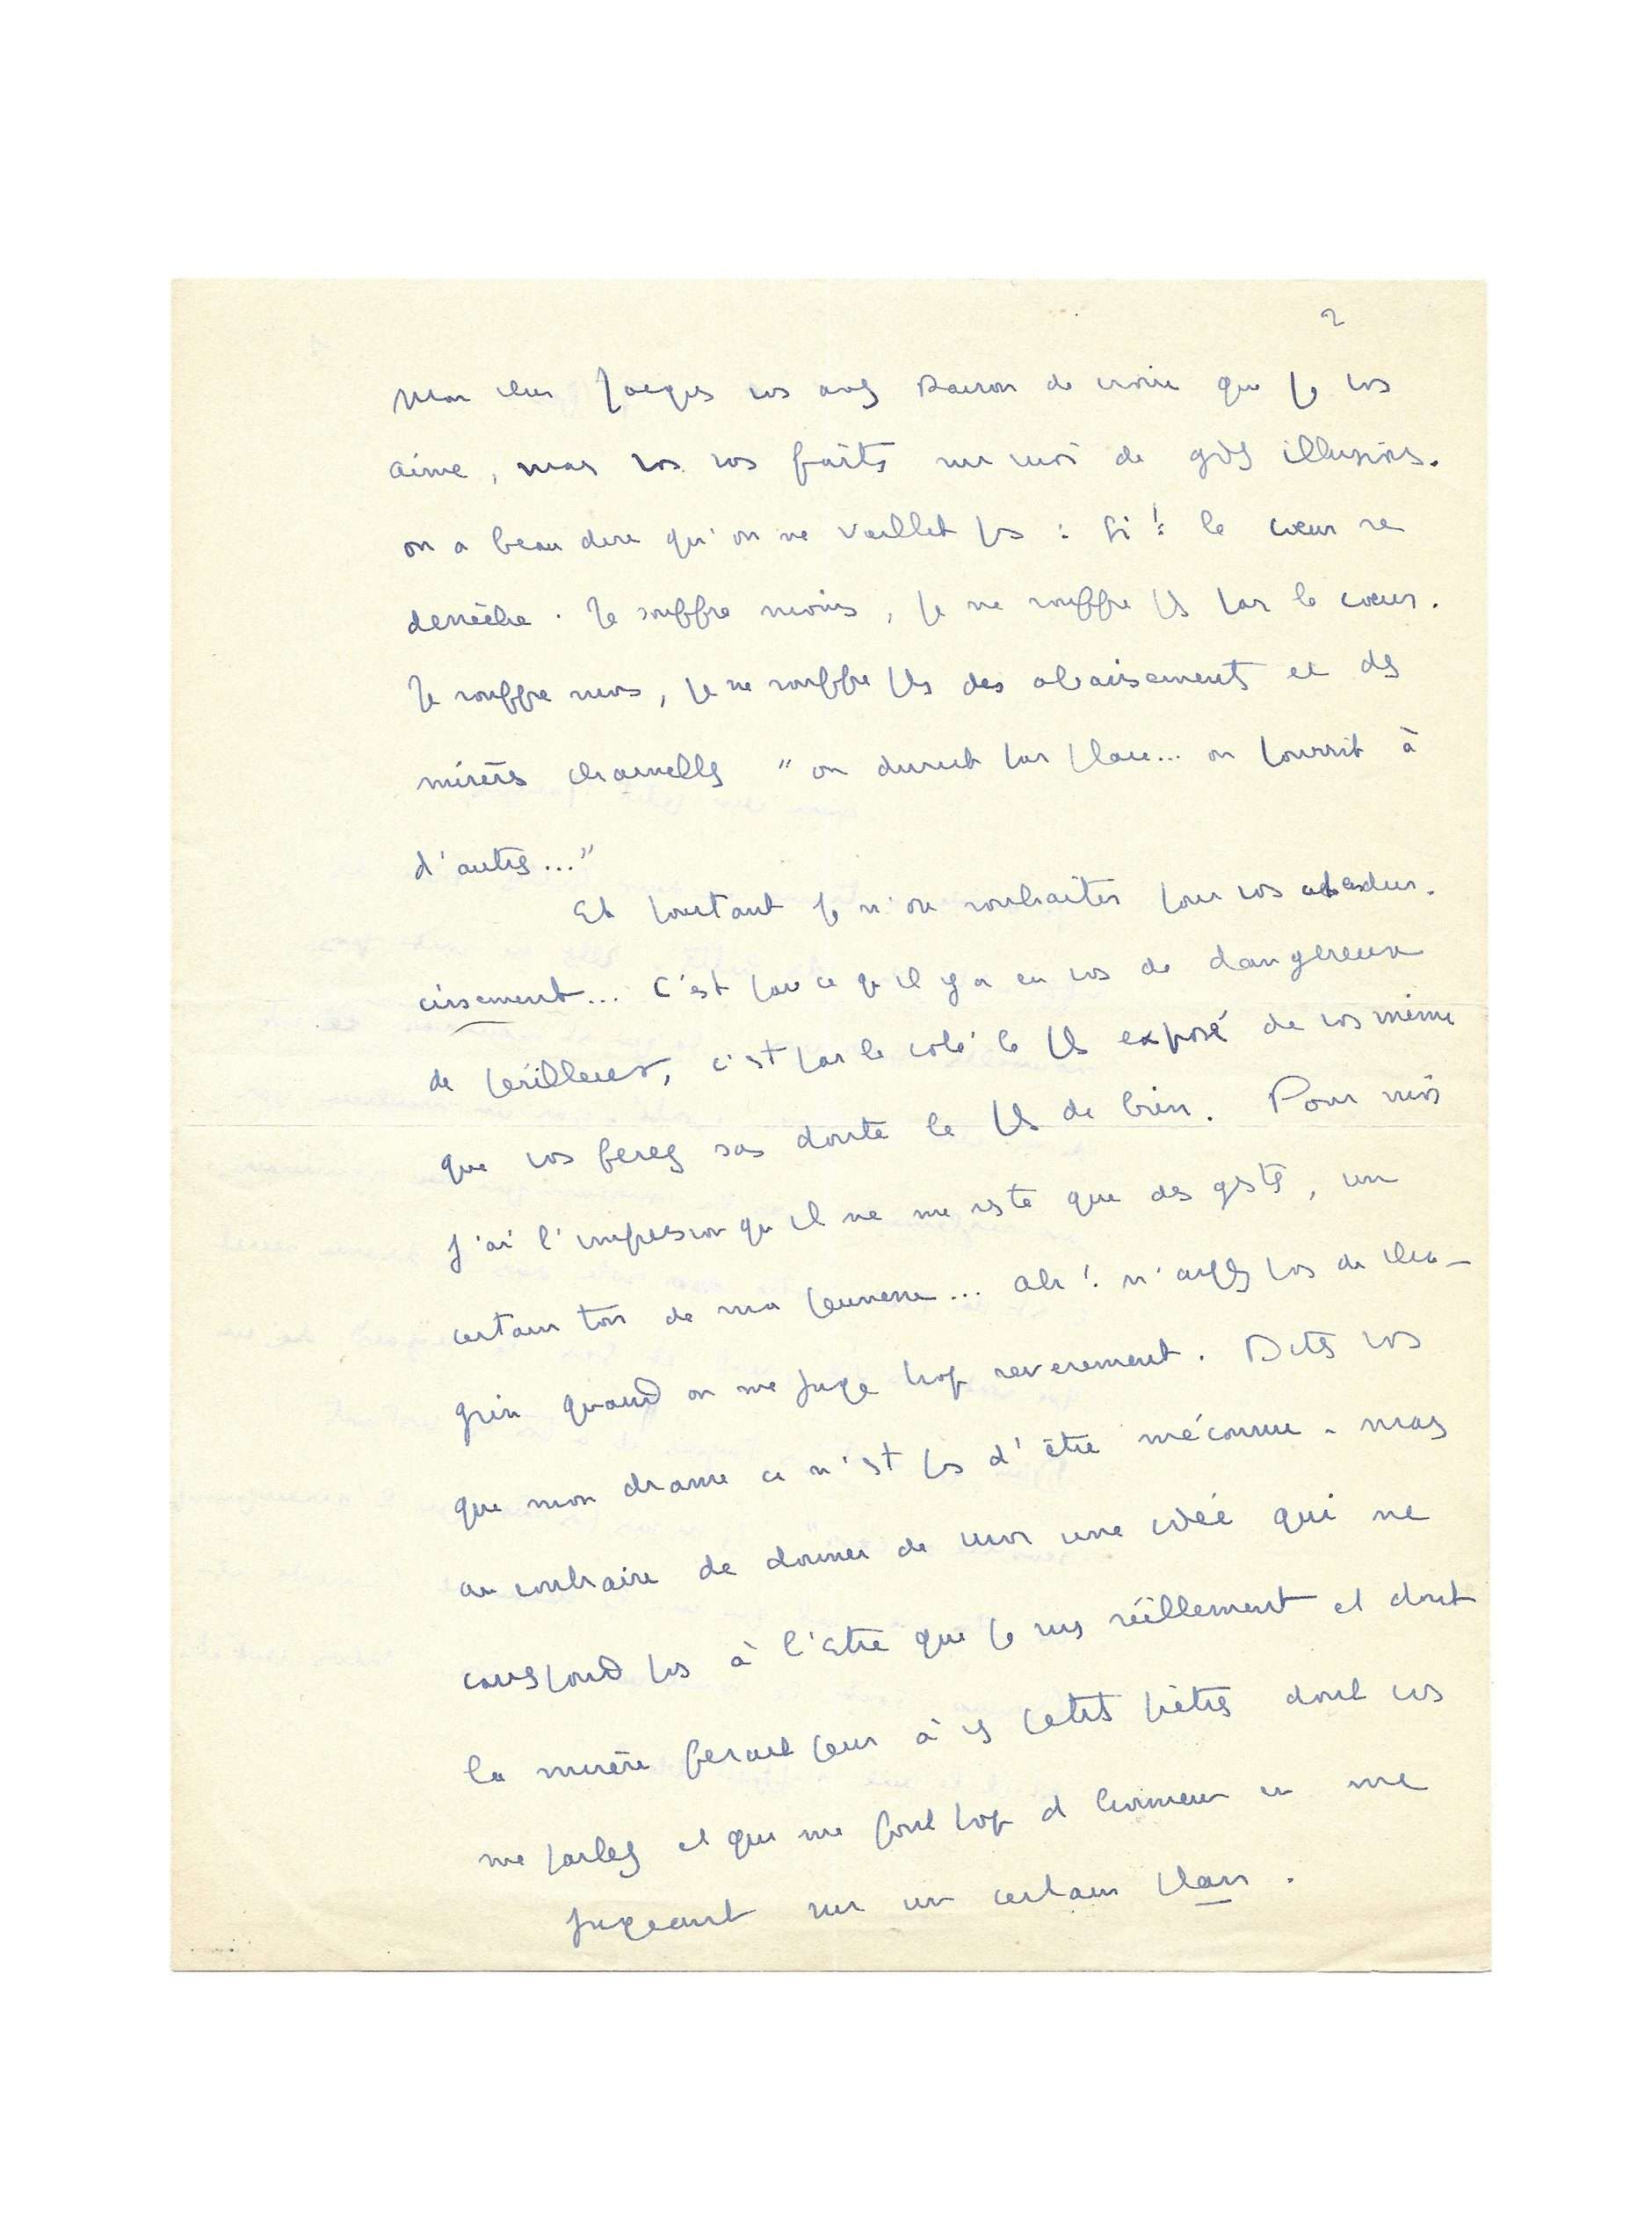 2
Mon cher Jacques vos avez raison de croire que je vos
aime, mais vos vos faites sur moi de gds illusions.
on a beau dire qu'on ne vieillit ps : Si ! le cœur se
dessèche. Je souffre moins, je ne souffre ps par le cœur.
Je souffre moins, je ne souffre ps des abaissements et des
misères charnelles "on durcit par place... on pourrit à
d'autres..."
Et pourtant je n'ose souhaiter pour vos
cissement... C'est par ce qu'il y a en vos de dangereux
de périlleux, c'est par le coté le ps exposé de vos même
que vos ferez sas doute le ps de bien. Pour moi
j'ai l'impression qu'il ne me reste que des gestes, un
certain ton de ma jeunesse... ah ! n'ayez pas de cha-
grin quand on me juge trop severement. Dites vos
que mon drame ce n'est ps d'être méconnu - mais
au contraire de donner de moi une idée qui ne
correspond ps à l'Etre que je suis réellement et dont
la misère ferait peur à ces petits prêtres dont vos
me parlez et qui me font trop d'honneur en me
jugeant sur un certain plan.